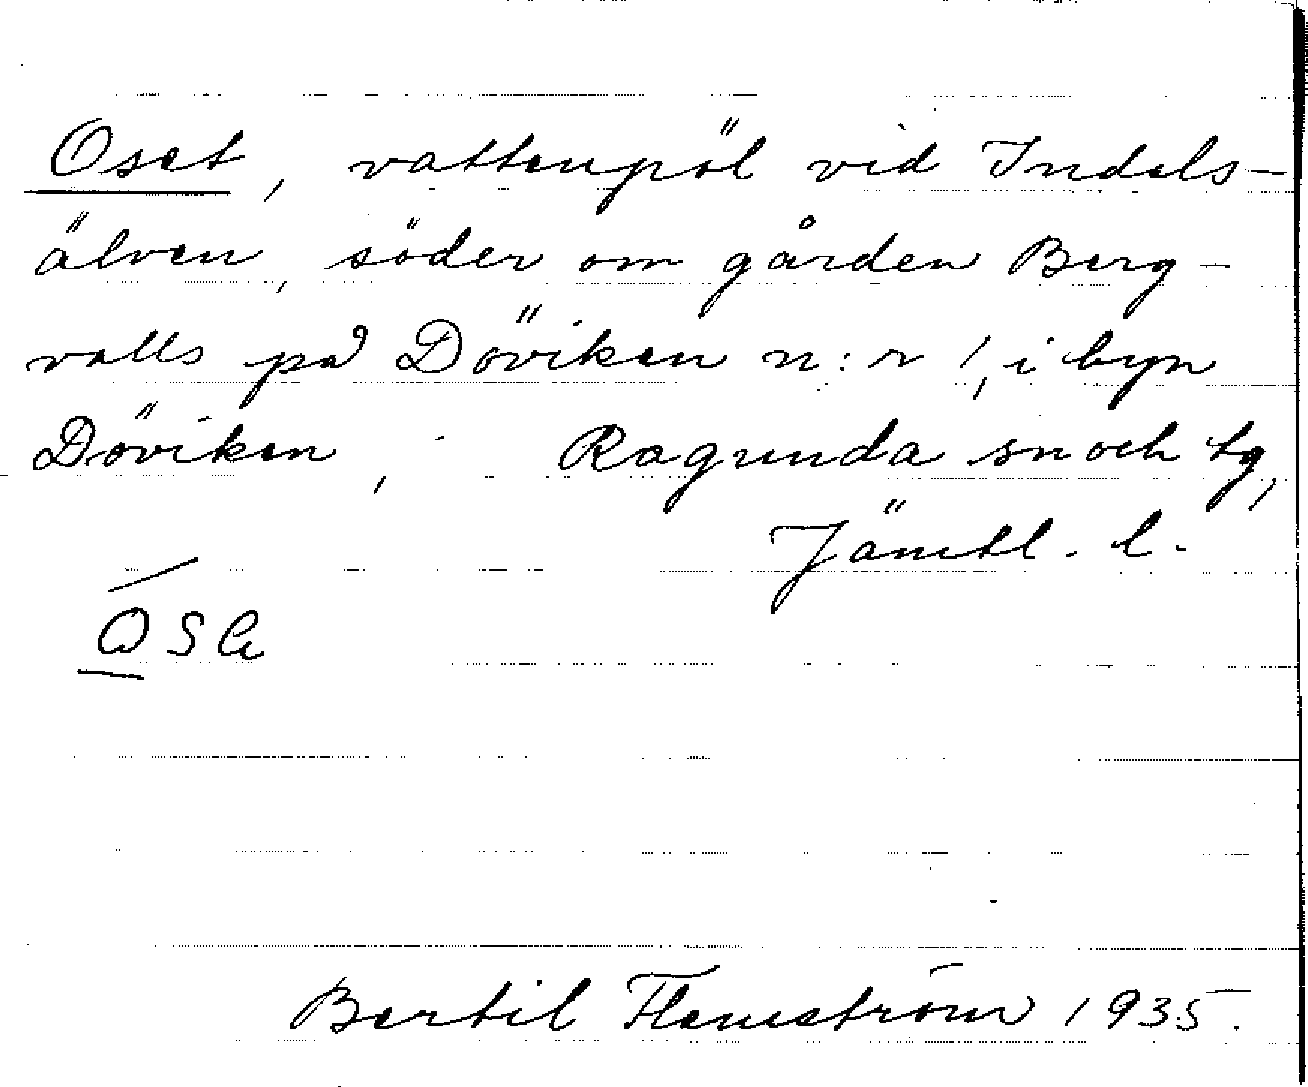 Oset, vattenpöl vid Indals-
älven, söder om gården Berg-
valls på Döviken n:r 1, i byn
Döviken, Ragunda sn och tg,
Jämtl. l.
Bertil Flemström 1935.